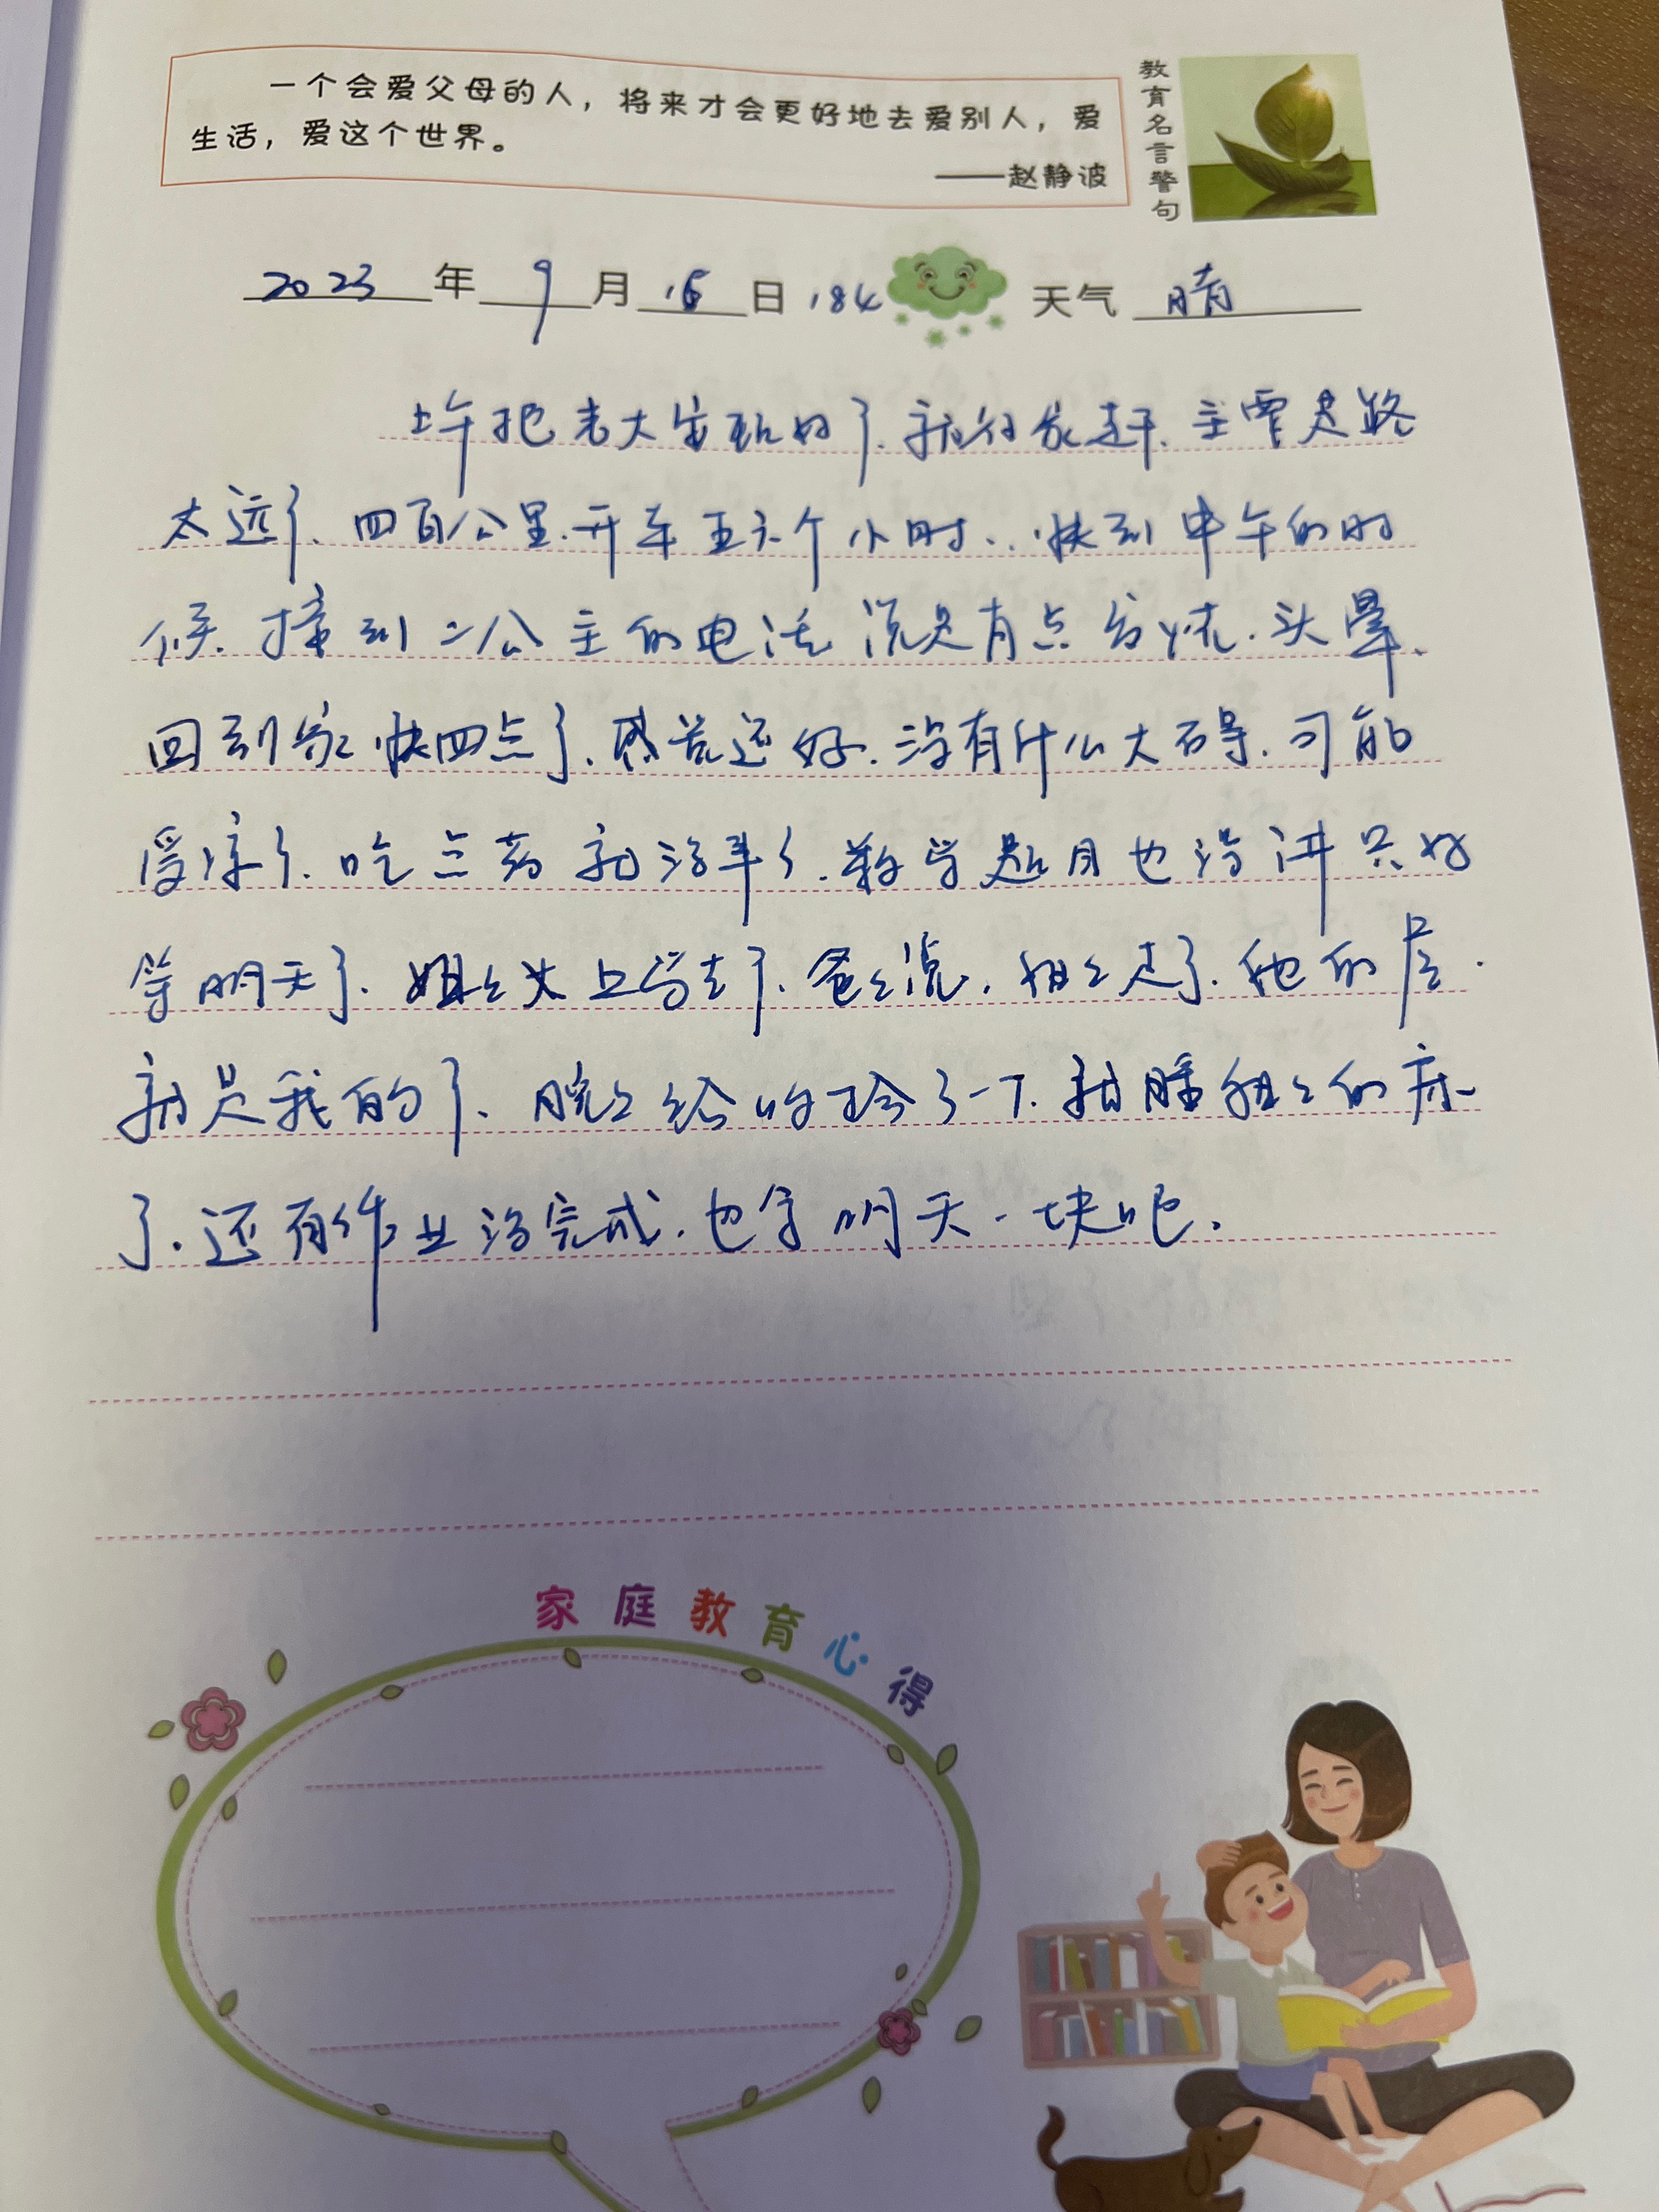 一个会爱父母的人，将来才会更好地去爱别人，爱
生活，爱这个世界。
——赵静波
教育名言警句
2023年9月16日 184 天气 晴
上午把老大安顿好了.就往家赶.主要是路
太远了.四百公里.开车五六个小时..快到中午的时
候.接到二公主的电话 说是有点发烧.头晕.
回到家快四点了.感觉还好.没有什么大碍.可能
受凉了.吃点药就没事了.数学题目也没讲只好
等明天了.姐姐大上学去了.爸爸说.姐姐走了.他的房.
就是我的了.晚上给收拾了一下.就睡姐姐的床
了.还有作业没完成.也等明天一块吧.
家庭教育心得